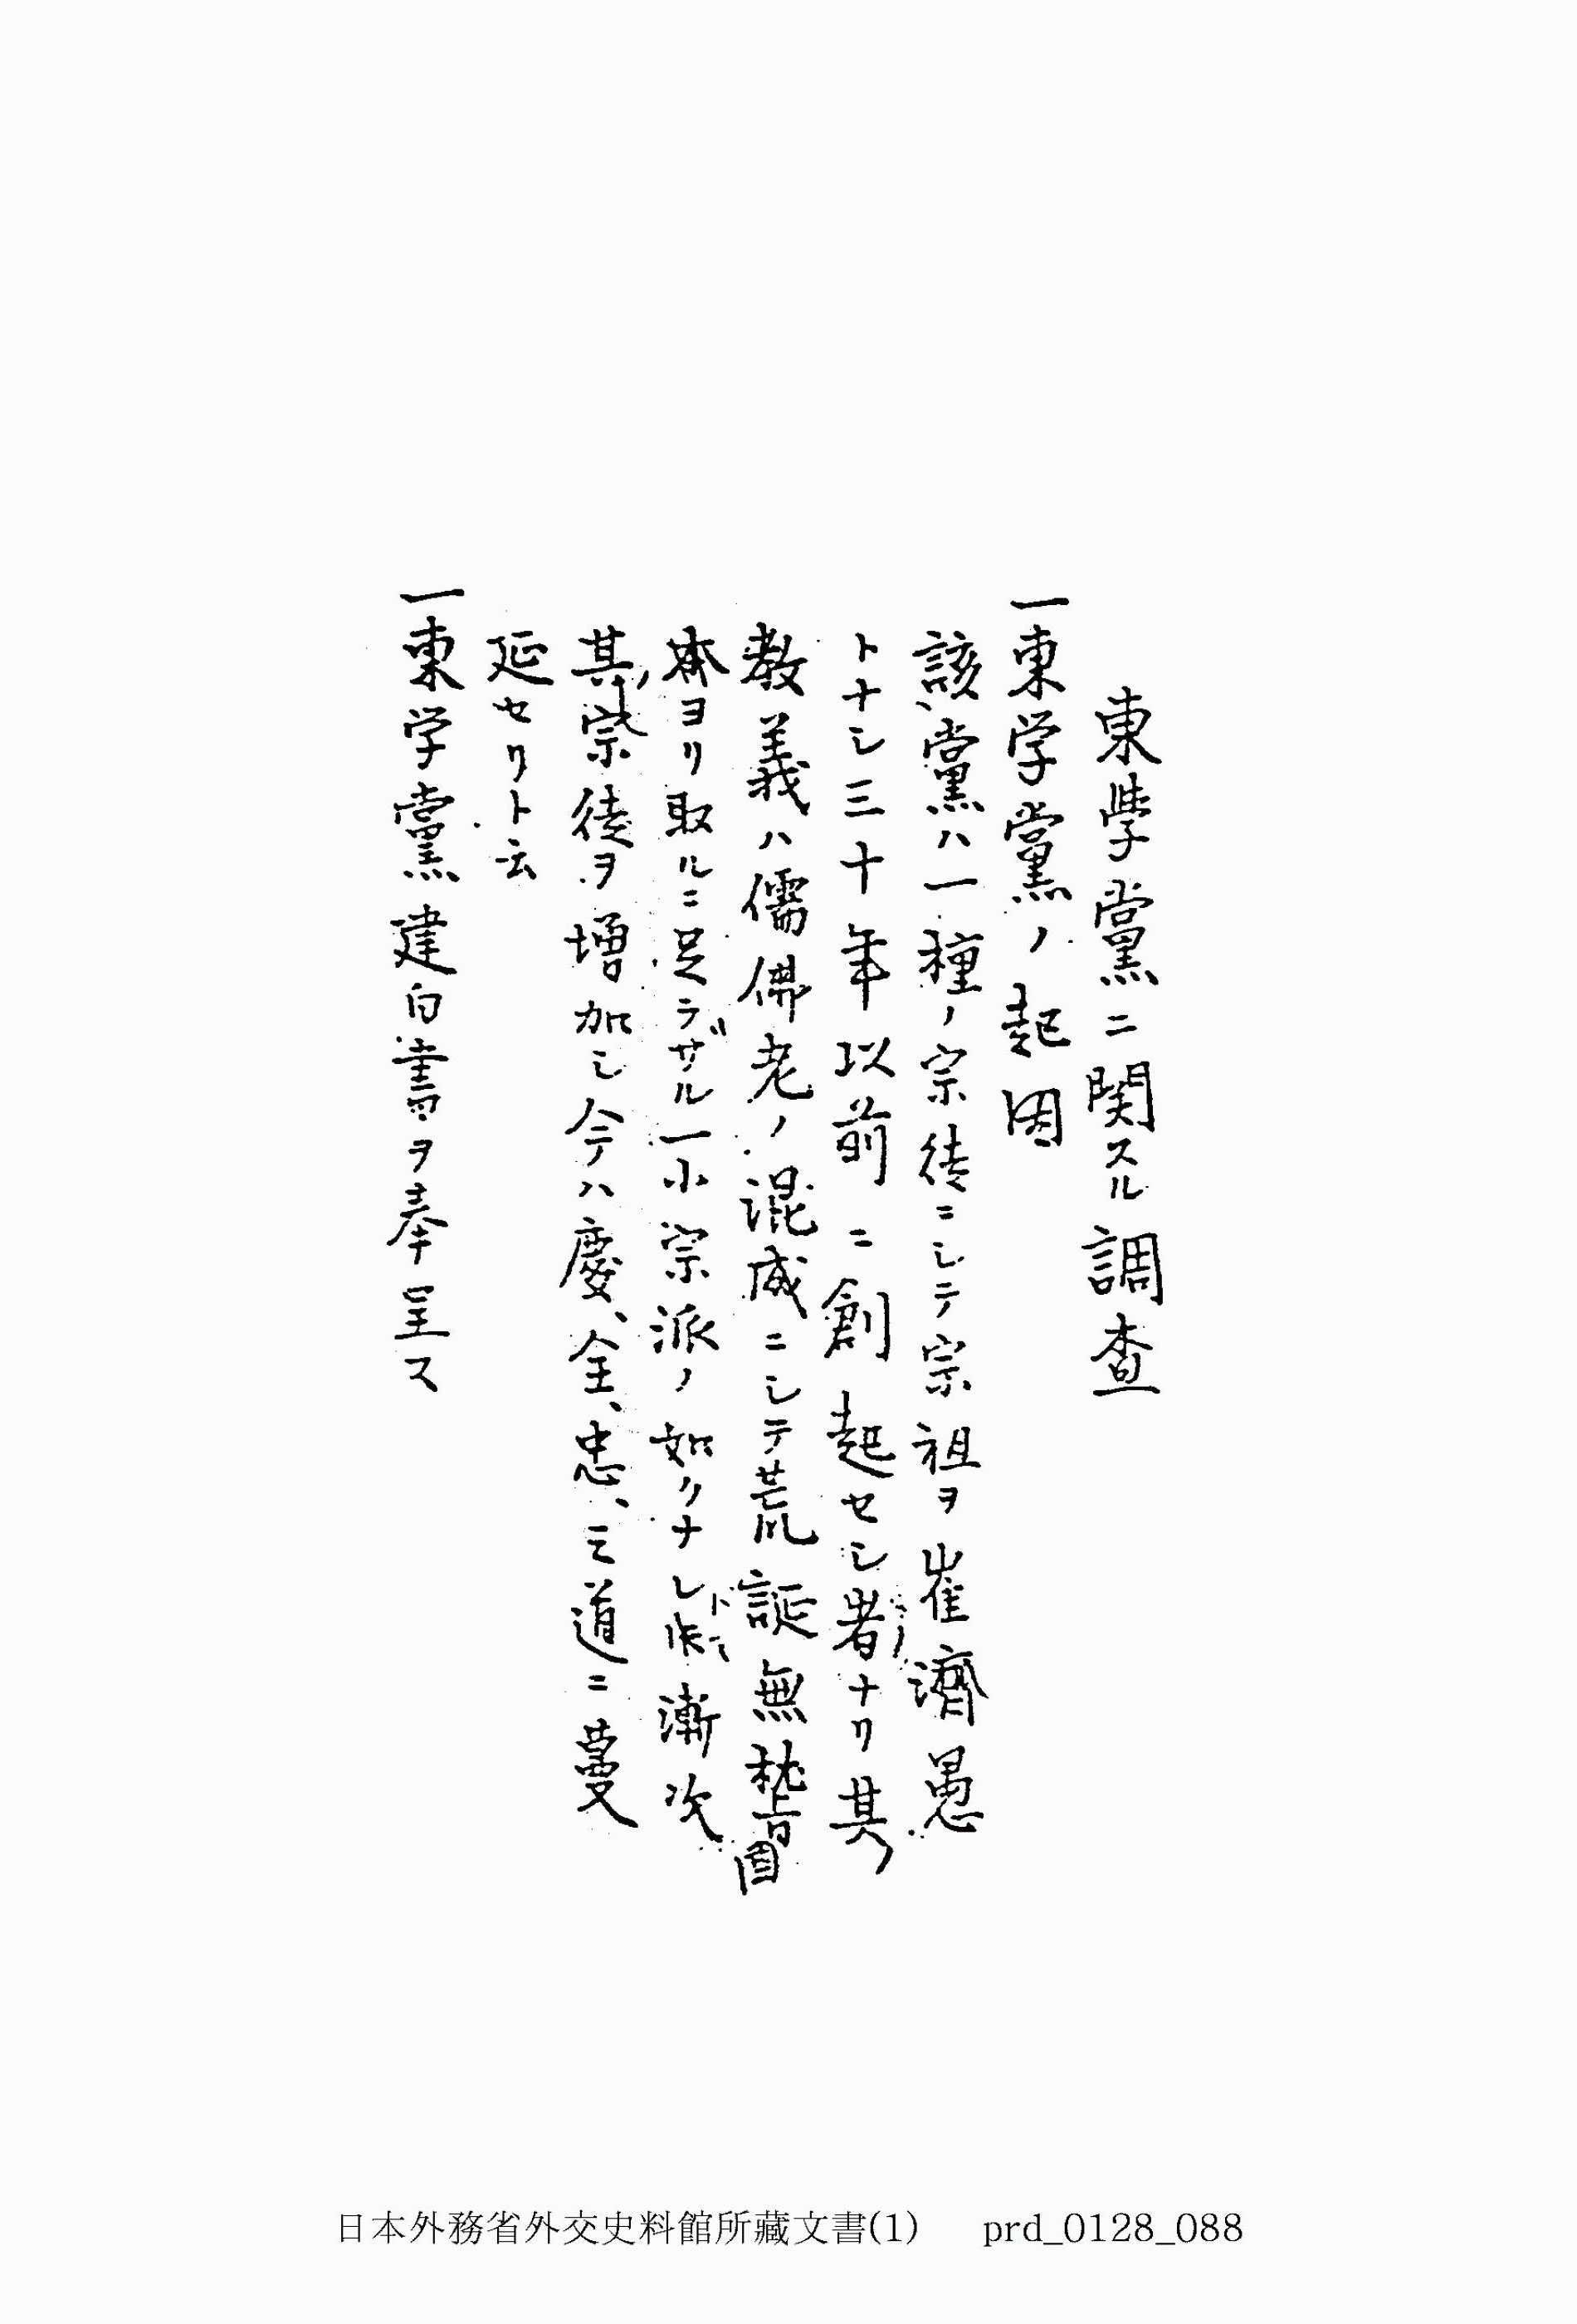 東學黨ニ関スル調査
一東学黨ノ起因
該黨ハ一種ノ宗徒ニシテ宗祖ヲ崔濟愚
トナシ三十年以前ニ創起セシ者ナリ其
教義ハ儒佛老ノ混成ニシテ荒誕無稽固
ヨリ取ルニ足ラザル一小宗派ノ如クナレ𪜈漸次
其宗徒ヲ増加シ今ハ慶、全、忠、三道ニ蔓
延セリト云
一東学黨建白書ヲ奉呈ス
日本外務省外交史料館所藏文書(1) prd_0128_088